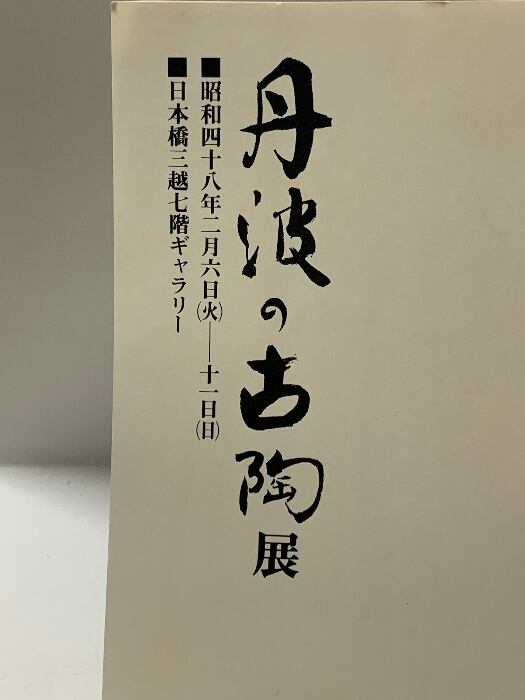 丹波の古陶展
■昭和四十八年二月六日(火)——十一日(日)
■日本橋三越七階ギャラリー